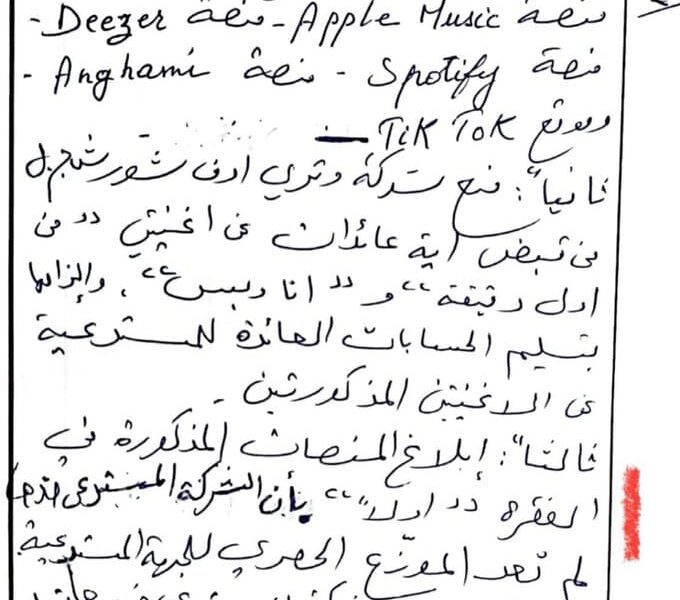 منصة Apple Music - منصة Deezer -
منصة Spotify - منصة Anghami -
وموقع TiK ToK
ثانياً: منع شركة وتري اوف شور ش.م.ل
من قبض اية عائدات عن اغنيتي "من
اول دقيقة" و "انا وبس". والزامها
بتسليم الحسابات العائدة للمستدعية
عن الاغنيتين المذكورتين -
ثالثاً: إبلاغ المنصات المذكورة في
الفقرة "اولاً" بأن الشركة المستدعى ضدها
لم تعد الموزّع الحصري للجهة المستدعية